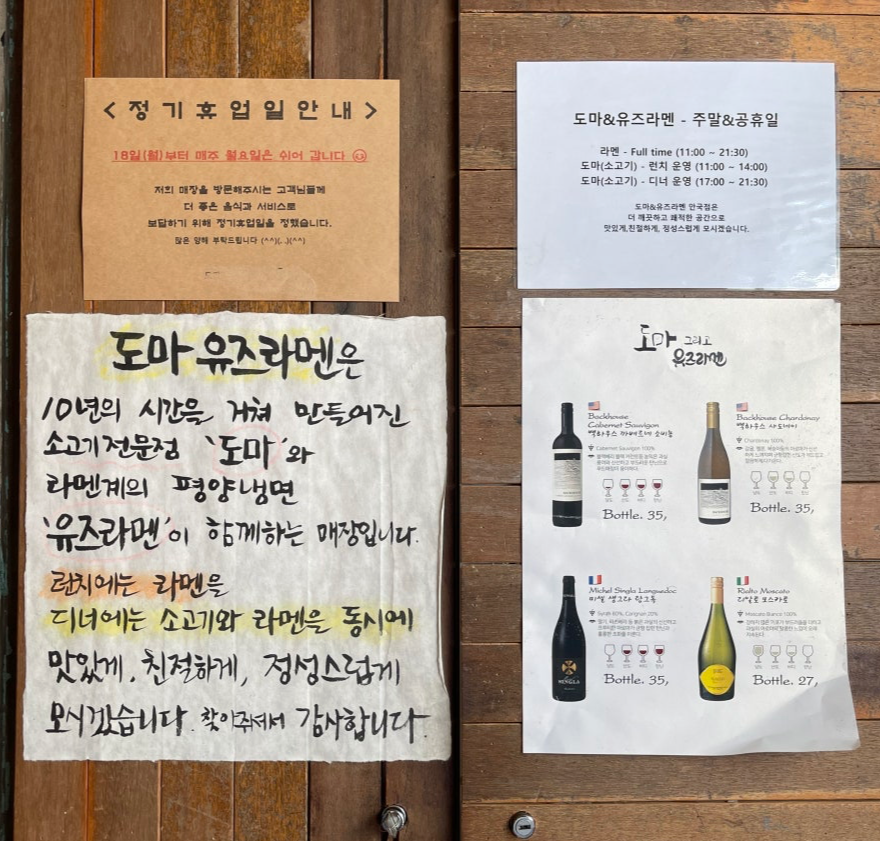 < 정기휴업일안내 >
18일(월)부터 매주 월요일은 쉬어 갑니다
저희 매장을 방문해주시는 고객님들께
더 좋은 음식과 서비스로
보답하기 위해 정기휴업일을 정했습니다.
많은 양해 부탁드립니다 (^^)(_ _)(^^)
도마 유즈라멘은
10년의 시간을 거쳐 만들어진
소고기전문점 '도마'와
라멘계의 평양냉면
'유즈라멘'이 함께하는 매장입니다.
런치에는 라멘을
디너에는 소고기와 라멘을 동시에
맛있게, 친절하게, 정성스럽게
모시겠습니다. 찾아주셔서 감사합니다.
도마&유즈라멘 - 주말&공휴일
라멘 - Full time (11:00 ~ 21:30)
도마(소고기) - 런치 운영 (11:00 ~ 14:00)
도마(소고기) - 디너 운영 (17:00 ~ 21:30)
도마&유즈라멘 안국점은
더 깨끗하고 쾌적한 공간으로
맛있게,친절하게, 정성스럽게 모시겠습니다.
도마 그리고
유즈라멘
Backhouse
Cabernet Sauvignon
백하우스 까베르네 소비뇽
Cabernet Sauvignon 100%
Bottle. 35,
Backhouse Chardonnay
백하우스 샤도네이
Chardonnay 100%
Bottle. 35,
Michel Singla Languedoc
미쉘 생글라 랑그독
Syrah 80%, Carignan 20%
Bottle. 35,
Rialto Moscato
리알토 모스카토
Moscato Bianco 100%
Bottle. 27,